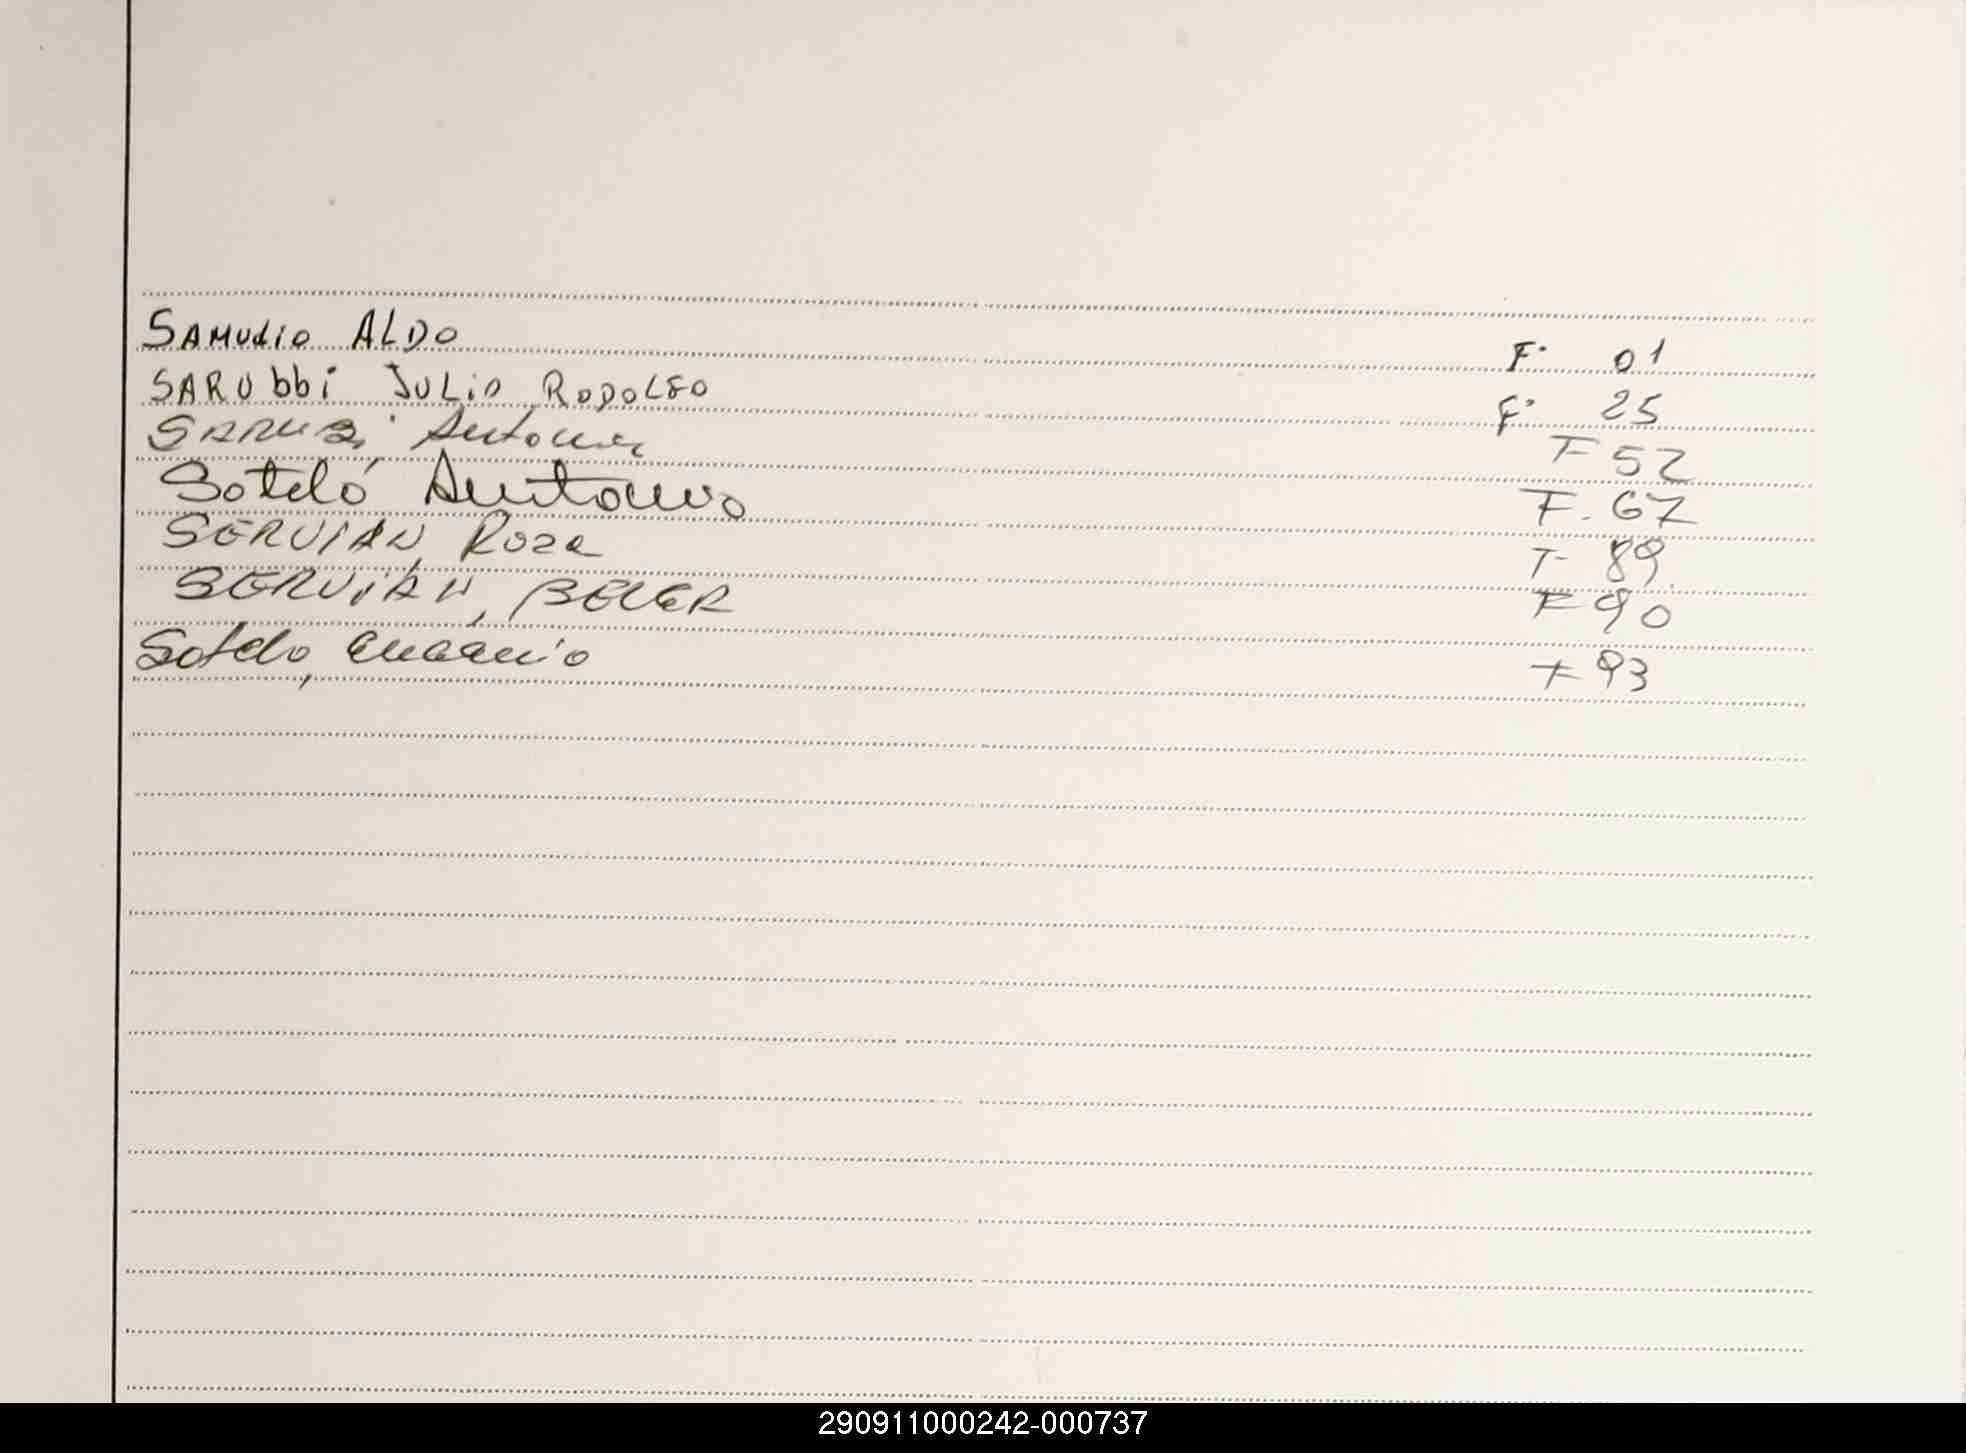 Samudio Aldo F. 01
Sarubbi Julio Rodolfo F. 25
Antonia F 52
Sotelo Antonio F. 67
Servian Rosa F 89
Servian, F 90
Sotelo, F 93
290911000242-000737